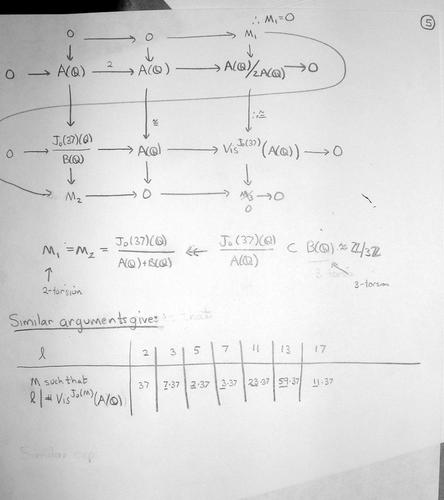 ∴ M₁=0
⑤
0 → 0 → M₁
0 → A(Q) 2→ A(Q) → A(Q)/2A(Q) → 0
≅ ∴≅
0 → J₀(37)(Q)/B(Q) → A(Q) → Vis^J₀(37)(A(Q)) → 0
M₂ → 0 → M₃ → 0
0
M₁ = M₂ = J₀(37)(Q)/A(Q)+B(Q) ↞ J₀(37)(Q)/A(Q) ⊂ B(Q) ≈ Z/3Z
2-torsion
3-torsion
Similar arguments give:
l 2 3 5 7 11 13 17
M such that 37 7·37 2·37 3·37 23·37 59·37 11·37
l | # Vis^J₀(M)(A/Q)